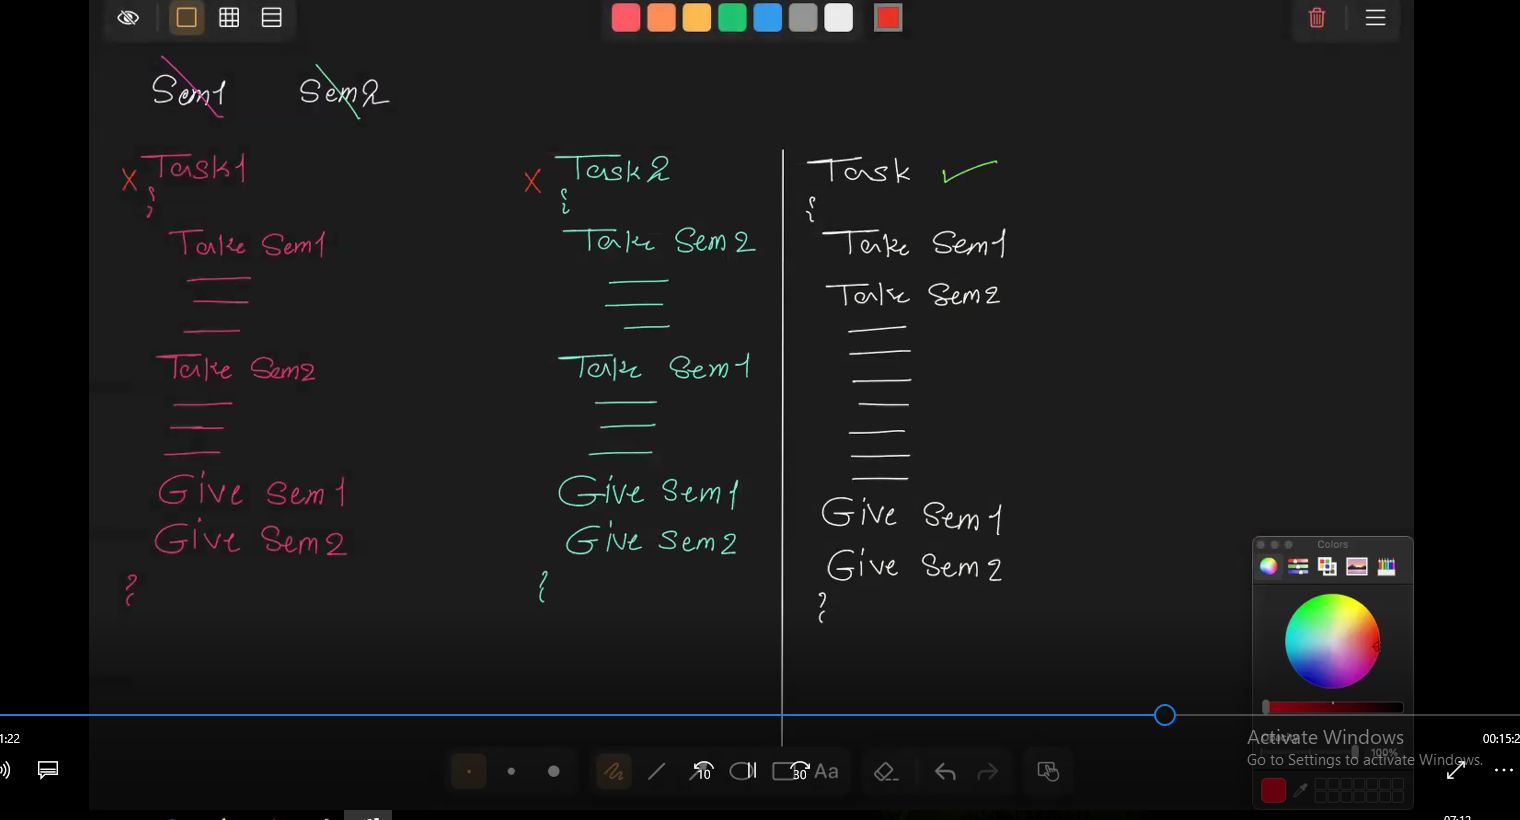 Sem1 Sem2
X Task1
{
Take Sem1
Take Sem2
Give Sem1
Give Sem2
}
X Task2
{
Take Sem2
Take Sem1
Give Sem1
Give Sem2
}
Task ✓
{
Take Sem1
Take Sem2
Give Sem1
Give Sem2
}
Colors
100%
Activate Windows
Go to Settings to activate Windows.
1:22
00:15:2
10
30
Aa
07:12